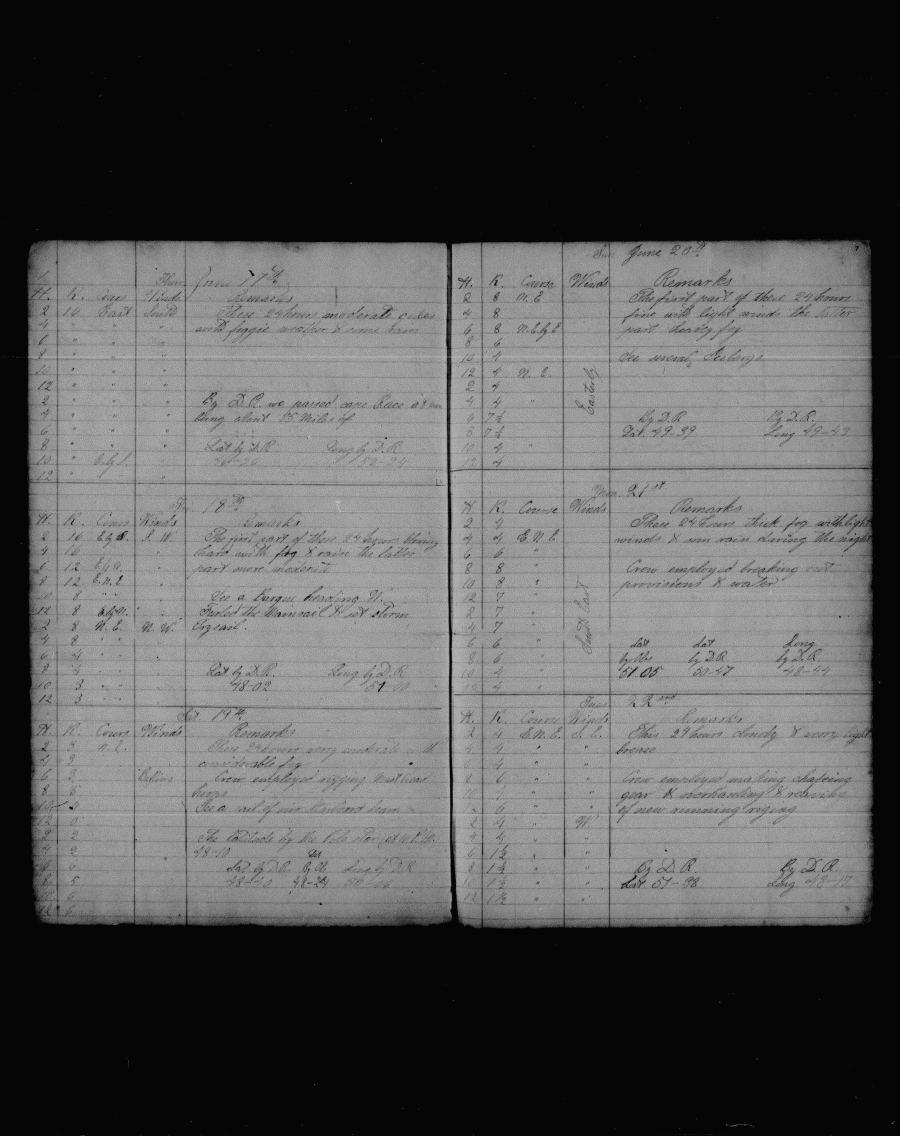 Thur June 17th
H. K. Cours Winds Remarks
2 10 East South These 24 hours moderate
4 " " " with foggie weather & some rain
6 " " "
8 " " "
10 " " "
12 " " "
2 " " " By D.R. we passed cape Race at
4 " " " being about 15 Miles of
6 " " "
8 " " " Lat by D.R. Long by D.R.
10 " E.by S. "
12 " " "
18th
H. K. Cours Winds Remarks
2 10 S. W. The first part of these 24 hours blowing
4 10 " hard with fog & raine the latter
6 12 " part more moderate
8 12 E.N.E "
10 8 " " " See a Barque heading W.
12 8 " Furled the Mainsail & set storm
2 8 N. E. N. W. trysail.
4 8 " "
6 4 " "
8 4 " " Lat by D.R. Long by D.R
10 3 " " 48-02
12 3 " "
Sat. 19th
H. K. Cours Winds Remarks
2 3 N. E. These 24 hours very moderate with
4 3 considerable fog
6 2 Crew employed rigging mast head
8 5 hoops
10 2 See a sail of our
12 0
2 2 The latitude by the Pole star
4 2 48-10
6 6 Lat by D.R. by Ob Long by D.R
8 5 48-24
10 6
12 6
Sun June 20th
H. K. Course Winds Remarks
2 8 N. E Easterly The first part of these 24 hours
4 8 fine with light winds the latter
6 8 N.E by E part heavy fog
8 6
10 4 See several
12 4 N. E.
2 4
4 4 "
6 7½ By D.R By D.R.
8 7½ Lat. 49-39 Long 49-43
10 4
12 4
Mon. 21st
H. K. Course Winds Remarks
2 4 South East These 24 hours thick fog with light
4 4 E. N. E winds & rain during the night
6 6 "
8 8 " Crew employed breaking out
10 8 " provisions & water
12 7 "
2 7 "
4 7 "
6 6 " Lat Lat Long
8 6 " by Obs by D.R. by D.R.
10 4 " 51-05 50-47 48-44
12 4 "
Tues 22nd
H. K. Course Winds Remarks
2 4 E.N.E. S. E. This 24 hours cloudy & very light
4 4 " " breese
6 4 " "
8 6 " " Crew employed making chafeing
10 7 " " gear & overhauling &
12 6 " " of new running riging
2 4 " W
4 4 " "
6 1½ " "
8 1½ " " By D.R. By D.R.
10 1½ " " Lat. 51-38 Long. 48-17
12 1½ " "